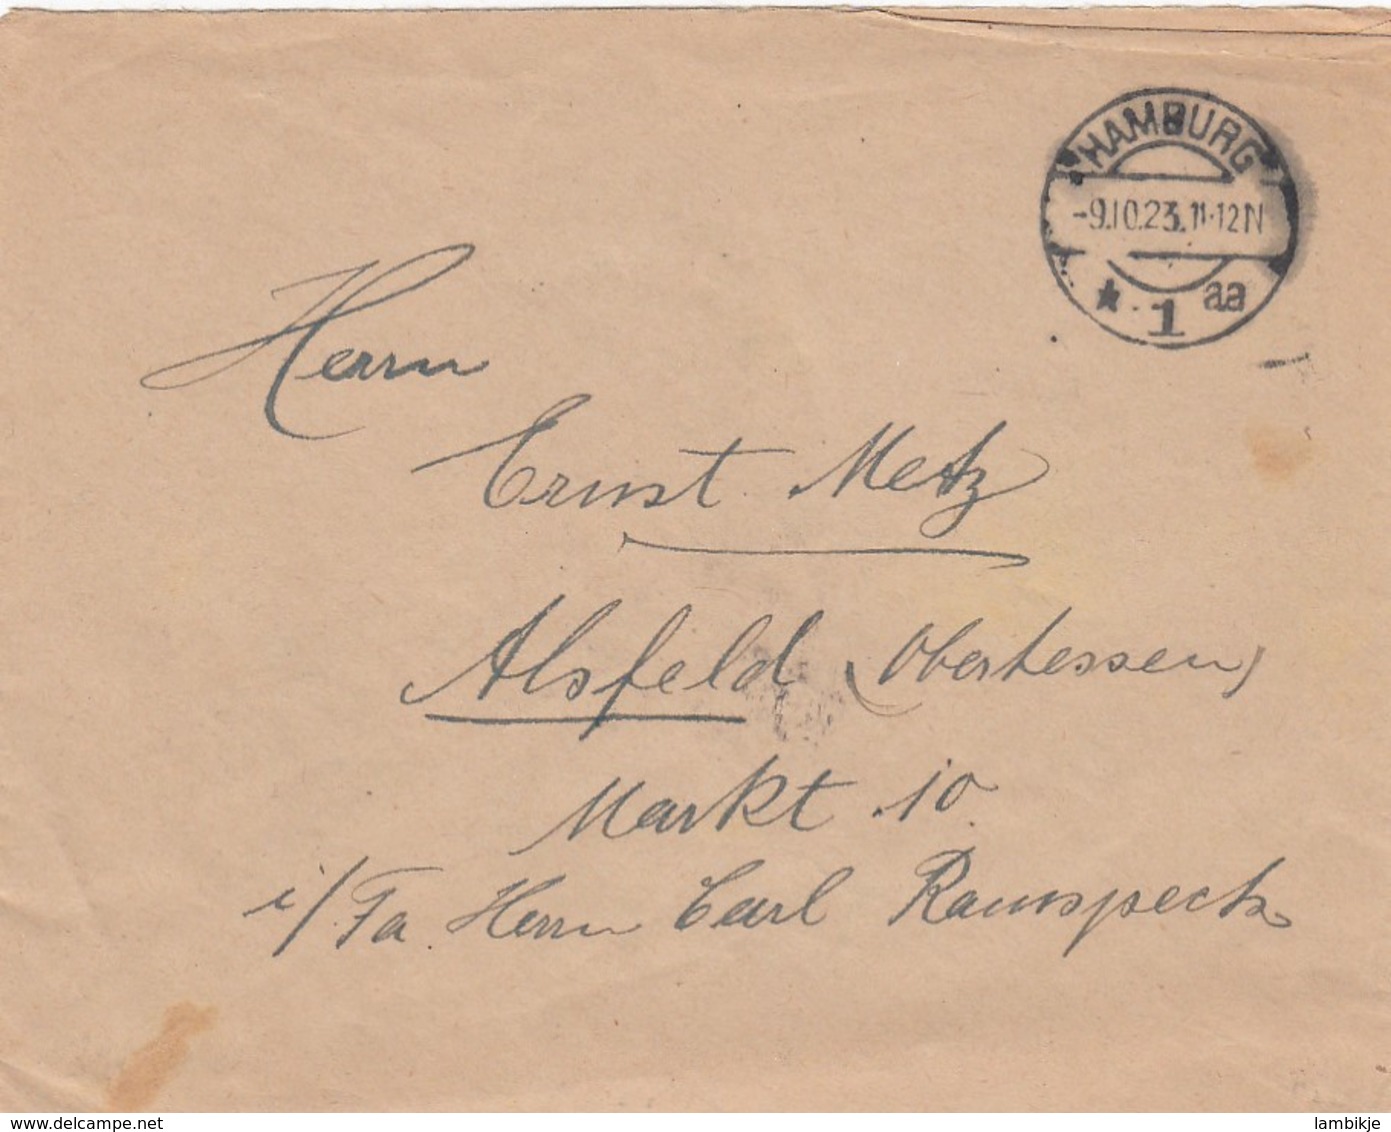 HAMBURG
-9.10.23.11-12N
* 1 aa
Herrn
Ernst Metz
Alsfeld (Oberhessen)
Markt 10
i/Fa. Herrn Carl Ramspeck
www.delcampe.net
lambikje